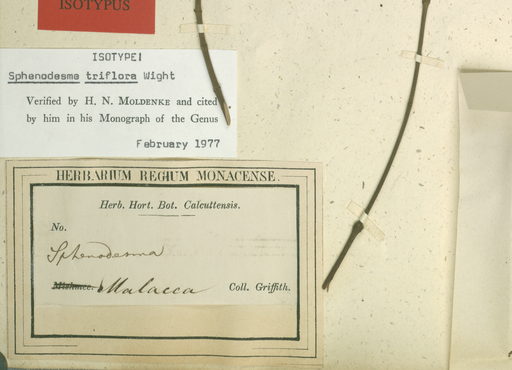 ISOTYPUS
ISOTYPE!
Sphenodesma triflora Wight
Verified by H. N. MOLDENKE and cited
by him in his Monograph of the Genus
February 1977
HERBARIUM REGIUM MONACENSE.
Herb. Hort. Bot. Calcuttensis.
No.
Sphenodesma
Mishmee. Malacca Coll. Griffith.